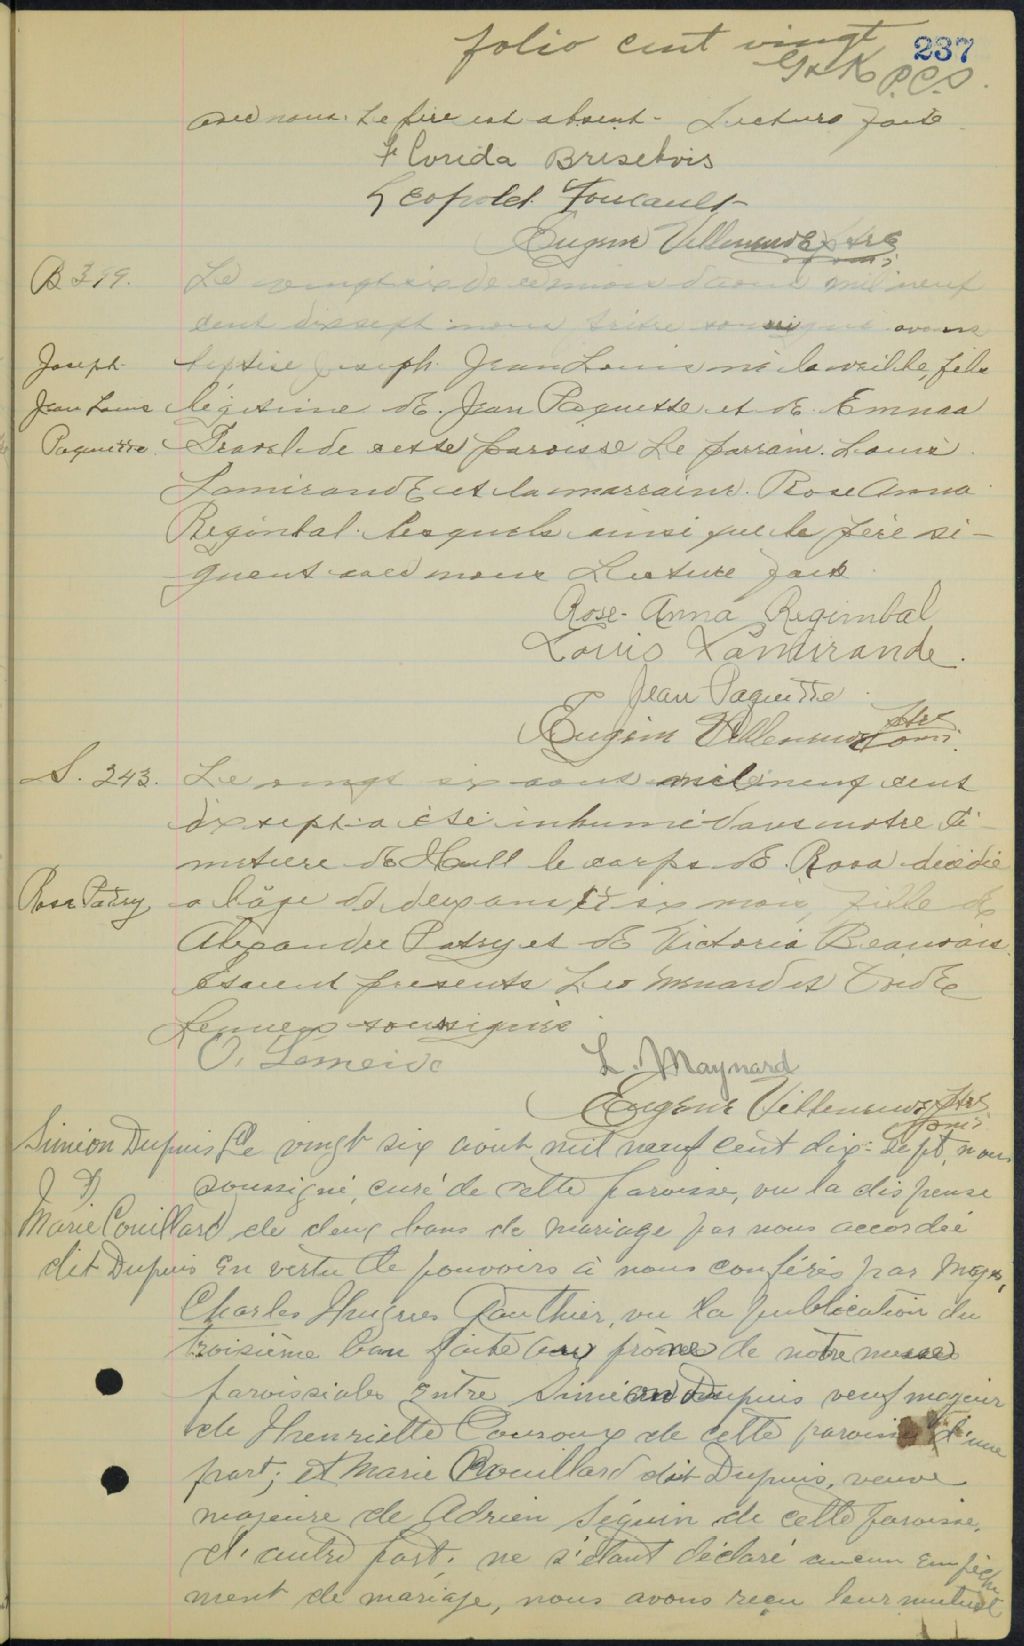 folio cent vingt 237
G. K. P.C.S.
avec nous. Le père est absent - Lecture faite
Florida Brisebois
Leopold Foucault
Eugène Villeneuve Ptre
o.m.i.
B 319. Le vingt six de ce mois d'aout mil neuf
cent dix sept nous prêtre soussigné avons
Joseph baptisé Joseph Jean Louis né la veille, fils
Jean Louis légitime de Jean Paquette et de Emma
Paquette. de cette paroisse Le parrain Louis
Lamirande et la marraine Rose Anna
Regimbal lesquels ainsi que le père si-
gnent avec nous Lecture faite
Rose-Anna Regimbal
Louis Lamirande.
Jean Paquette
Eugène Villeneuve Ptre
omi.
S. 243. Le vingt six aout mil neuf cent
dix sept a été inhumé dans notre ci-
metiere de Hull le corps de Rosa décédée
Rosa Patry a l'âge de deux ans et six mois, fille de
Alexandre Patry et de Victoria Beauvais.
Étaient présents Leo Menard et
soussignés
O. L. Maynard
Eugène Villeneuve Ptre
omi
Simeon Dupuis Le vingt six août mil neuf cent dix-sept, nous
soussigné, curé de cette paroisse, vu la dispense
Marie Couillard de deux bans de mariage par nous accordée
dit Dupuis en vertu de pouvoirs à nous conférés par Mgr,
Charles Hugues Gauthier, vu la publication du
troisième ban faite au prône de notre messe
paroissiales entre Siméon Dupuis veuf majeur
de Henriette Couroux de cette paroisse d'une
part; et Marie Couillard dit Dupuis, veuve
majeure de Adrien Séguin de cette paroisse,
d'autre part; ne s'étant déclaré aucun empêche
ment de mariage, nous avons reçu leur mutuel